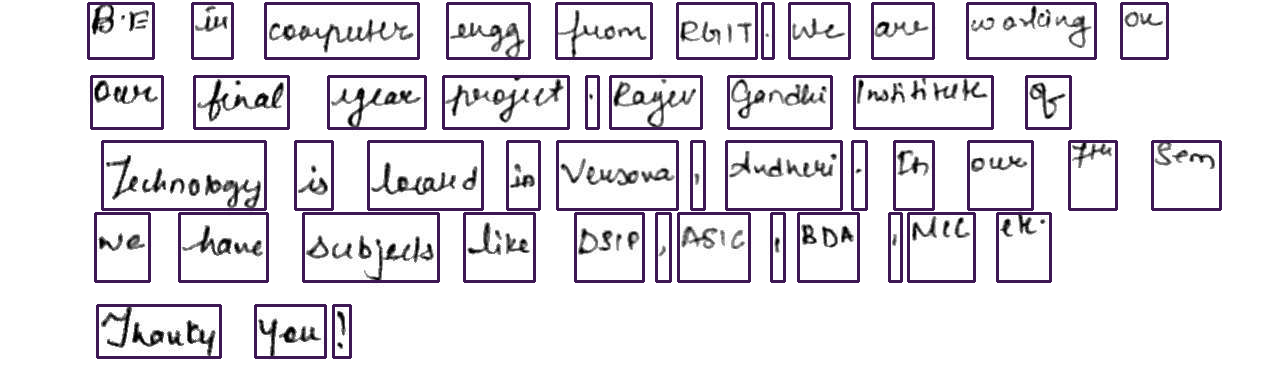 B.E in computer engg from RGIT. We are working on
our final year project. Rajiv Gandhi Institute of
Technology is located in Versova, Andheri. In our 7th Sem
we have subjects like DSIP, ASIC, BDA, MCC etc.
Thank you!